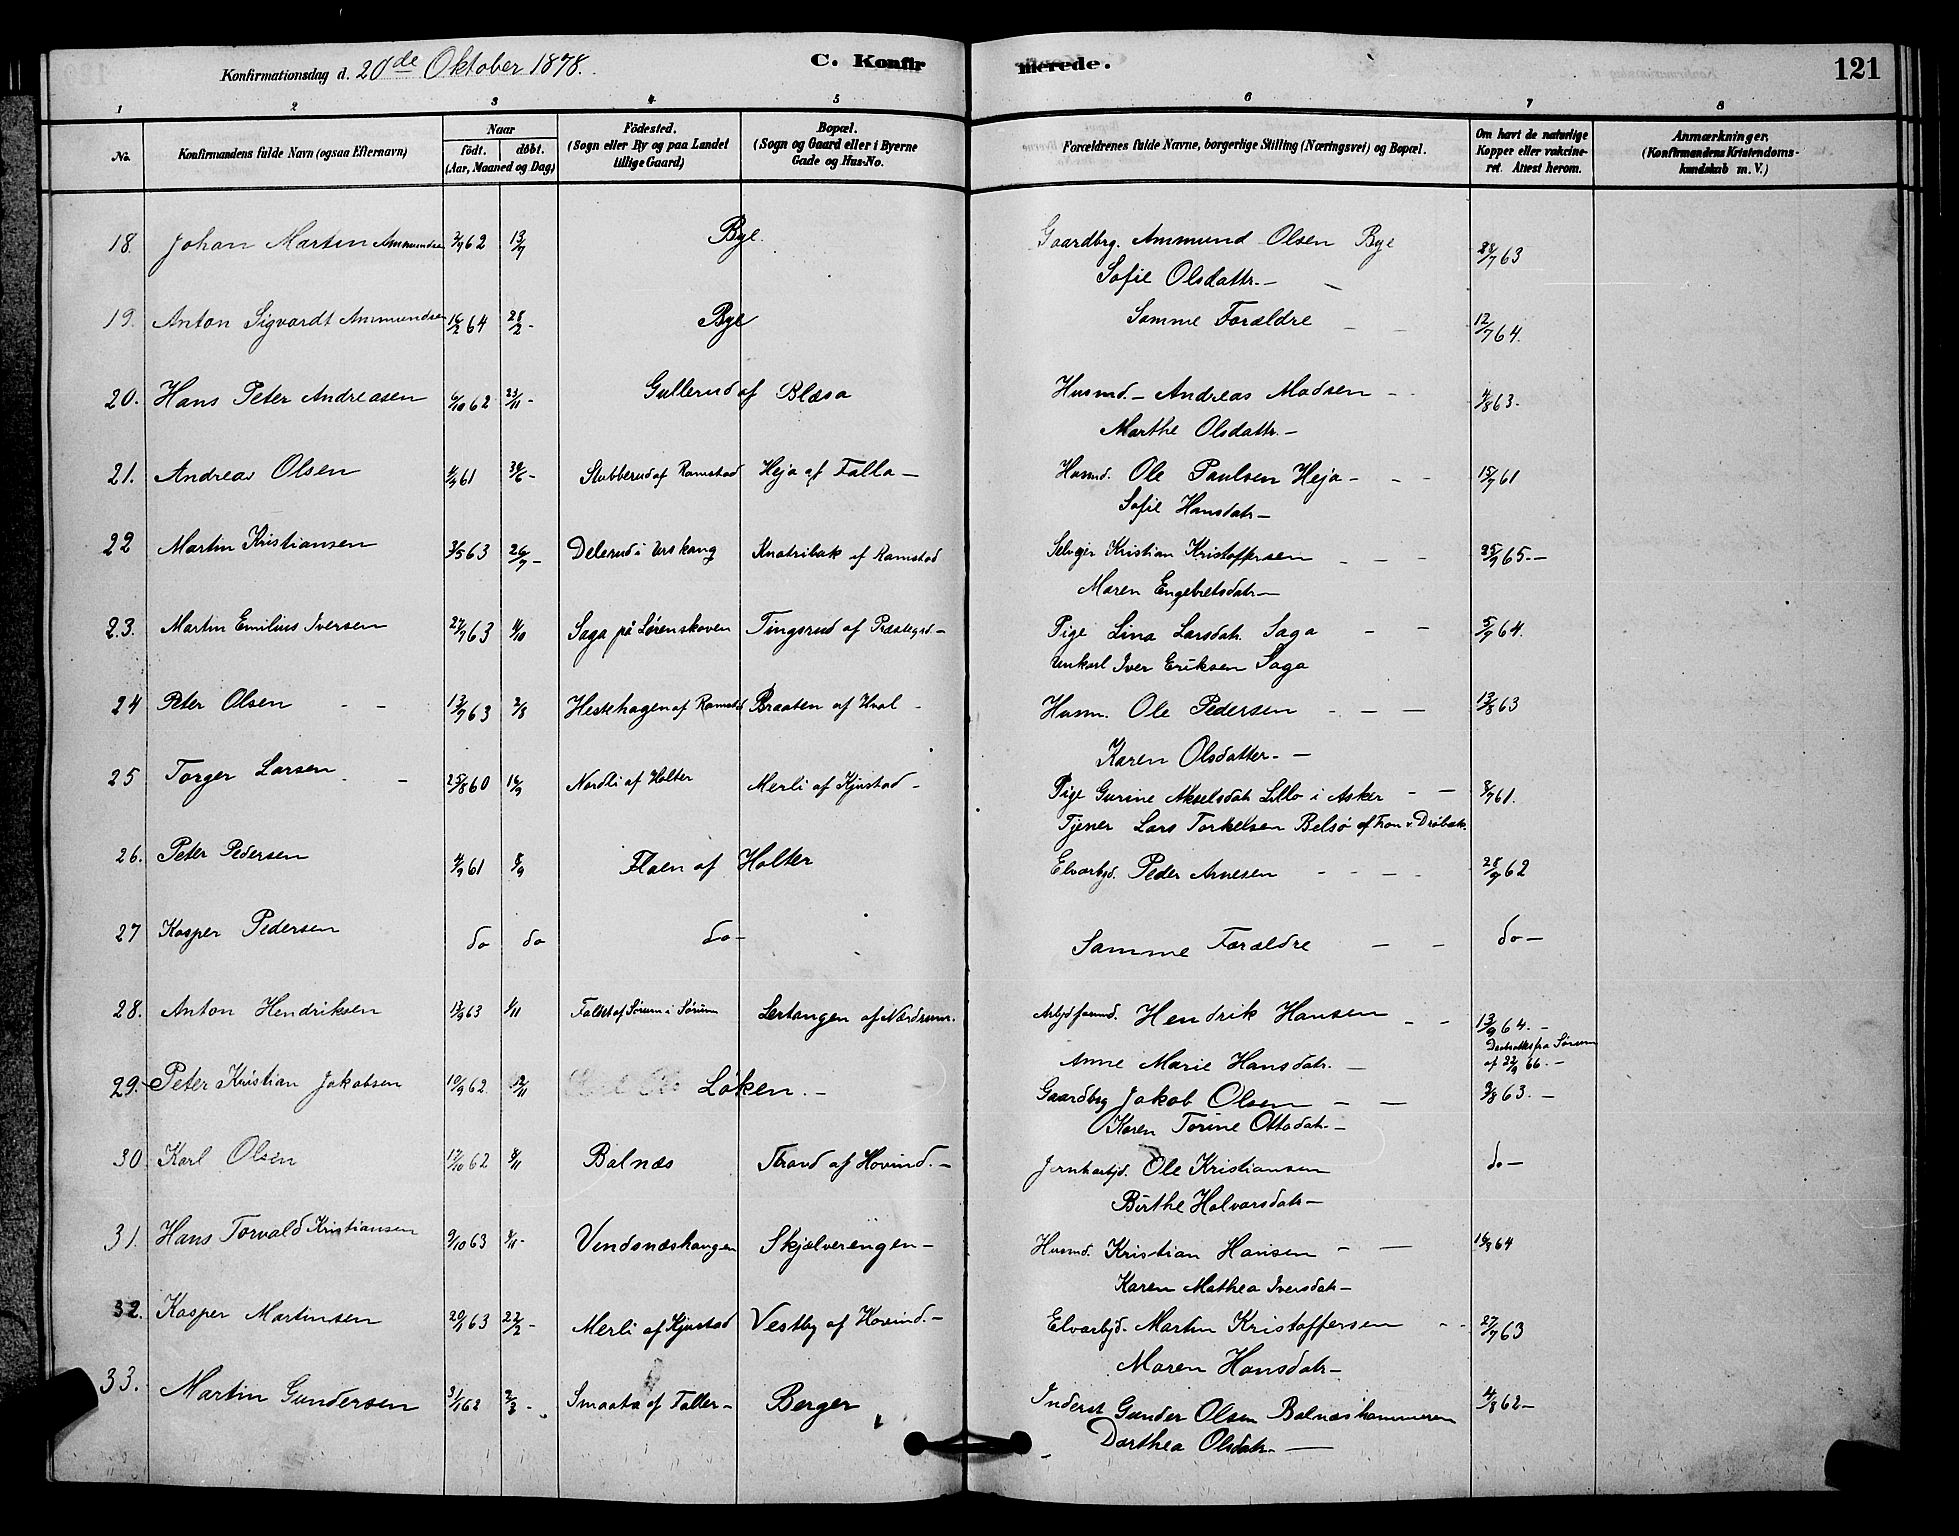 Konfirmationsdag d. 20de Oktober 1878.
C. Konfirmerede.
121
1 2 3 4 5 6 7 8
No.
Konfirmandens fulde Navn (ogsaa Efternavn)
Naar
födt. döbt.
(Aar, Maaned og Dag)
Födested.
(Sogn eller By og paa Landet
tillige Gaard)
Bopæl.
(Sogn og Gaard eller i Byerne
Gade og Hus-No.
Forældrenes fulde Navne, borgerlige Stilling (Næringsvei) og Bopæl.
Om havt de naturlige
Kopper eller vakcine-
ret. Attest herom.
Anmærkninger.
(Konfirmandens Kristendoms-
kundskab m. V.)
18. Johan Martin Ammundsen 2/7 62 13/7 Bye. Gaardbrg. Ammund Olsen Bye 28/7 63
Sofie Olsdattr. —
19. Anton Sigvardt Ammundsen 16/2 64 28/2 - Bye Samme Forældre — — 12/7 64.
20. Hans Peter Andreasen 6/10 62 23/11 - Gullerud af Blæsa Husmd. — Andreas Madsen - - 4/8 63.
Marthe Olsdattr. —
21. Andreas Olsen 61 - Stubberud af Ramstad Heja af Falla — Husmd. Ole Paulsen Heja - - - 15/7 61
Sofie Hansdatr —
22 Martin Kristiansen 3/5 63 26/7 - Delerud i Urskoug Knatribak af Ramstad Selvejer Kristian Kristoffersen - - - 25/9 65. —
Maren Engebretsdatr —
23. Martin Emilius Iversen 27/7 63 4/10 Saga på Lørenskoven Tingsrud af Præstegrd. — Pige Lina Larsdatr. Saga - - 5/7 64.
Unkarl Iver Eriksen Saga
24 Peter Olsen - - 13/7 63 2/8 Hestehagen af Ramstad Braaten af Hval - Husm. Ole Pedersen - - - 13/8 63
Karen Olsdatter. —
25 Torger Larsen - - 25/8 60 16/9 Nordli af Holter Merli af Kjustad - Pige Gurine Akselsdatr Lillo i Asker - - 8/7 61.
Tjener Lars Torkelsen Belsø af Fron v. Drøbak.
26. Peter Pedersen 4/9 61 8/9 Flaen af Holter Elvarbjd. Peder Arnesen - - - - 28/9 62
27 Kasper Pedersen do do do - Samme Forældre - - do —
28. Anton Hendriksen 13/9 63 1/11 Fallet af Sørum i Sørum Lertangen af Nordrum. Arbjdsformd. Hendrik Hansen - - 13/9 64. -
Anne Marie Hansdatr. —
Daabsattes fra Sørum
af 22/9 66. —
29. Peter Kristian Jakobsen 10/9 62 12/11 Løken. — Gaardbrg Jakob Olsen — — 9/8 63. —
Karen Torine Ottosdatr. —
30 Karl Olsen 12/10 62 8/11 Balnæs Strand af Hovind. — Jernbarbjd. Ole Kristiansen do —
Birthe Halvorsdatr —
31. Hans Torvald Kristiansen 9/10 63 1/11 - Vendsnæshaugen Skjælverengen — Husmd. Kristian Hansen - — 16/8 64
Karen Mathea Iversdatr —
32. Kasper Martinsen 20/1 63 22/2 - Merli af Kjustad Vestby af Hovind. — Elvarbjd. Martin Kristoffersen - - 27/7 63
Maren Hansdatr —
33. Martin Gundersen 3/1 62 2/3 - Smaata af Faller — Berger Inderst Gunder Olsen Balnæskammeren 4/8 62 —
Dorthea Olsdatr. —